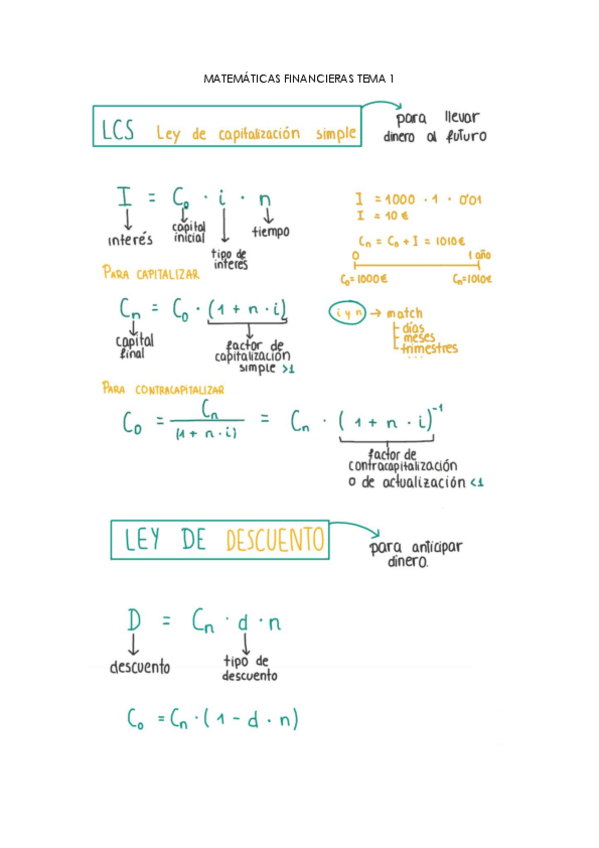 MATEMÁTICAS FINANCIERAS TEMA 1
LCS Ley de capitalización simple
para llevar
dinero al futuro
I = C₀ · i · n
interés
capital
inicial
tipo de
interés
tiempo
I = 1000 · 1 · 0'01
I = 10 €
Cn = C₀ + I = 1010€
0 1 año
C₀= 1000€ Cn=1010€
PARA CAPITALIZAR
Cn = C₀ · (1 + n · i)
capital
final
factor de
capitalización
simple >1
i y n → match
días
meses
trimestres
...
PARA CONTRACAPITALIZAR
C₀ = Cn / (1 + n · i) = Cn · (1 + n · i)⁻¹
factor de
contracapitalización
o de actualización <1
LEY DE DESCUENTO
para anticipar
dinero.
D = Cn · d · n
descuento
tipo de
descuento
C₀ = Cn · (1 - d · n)